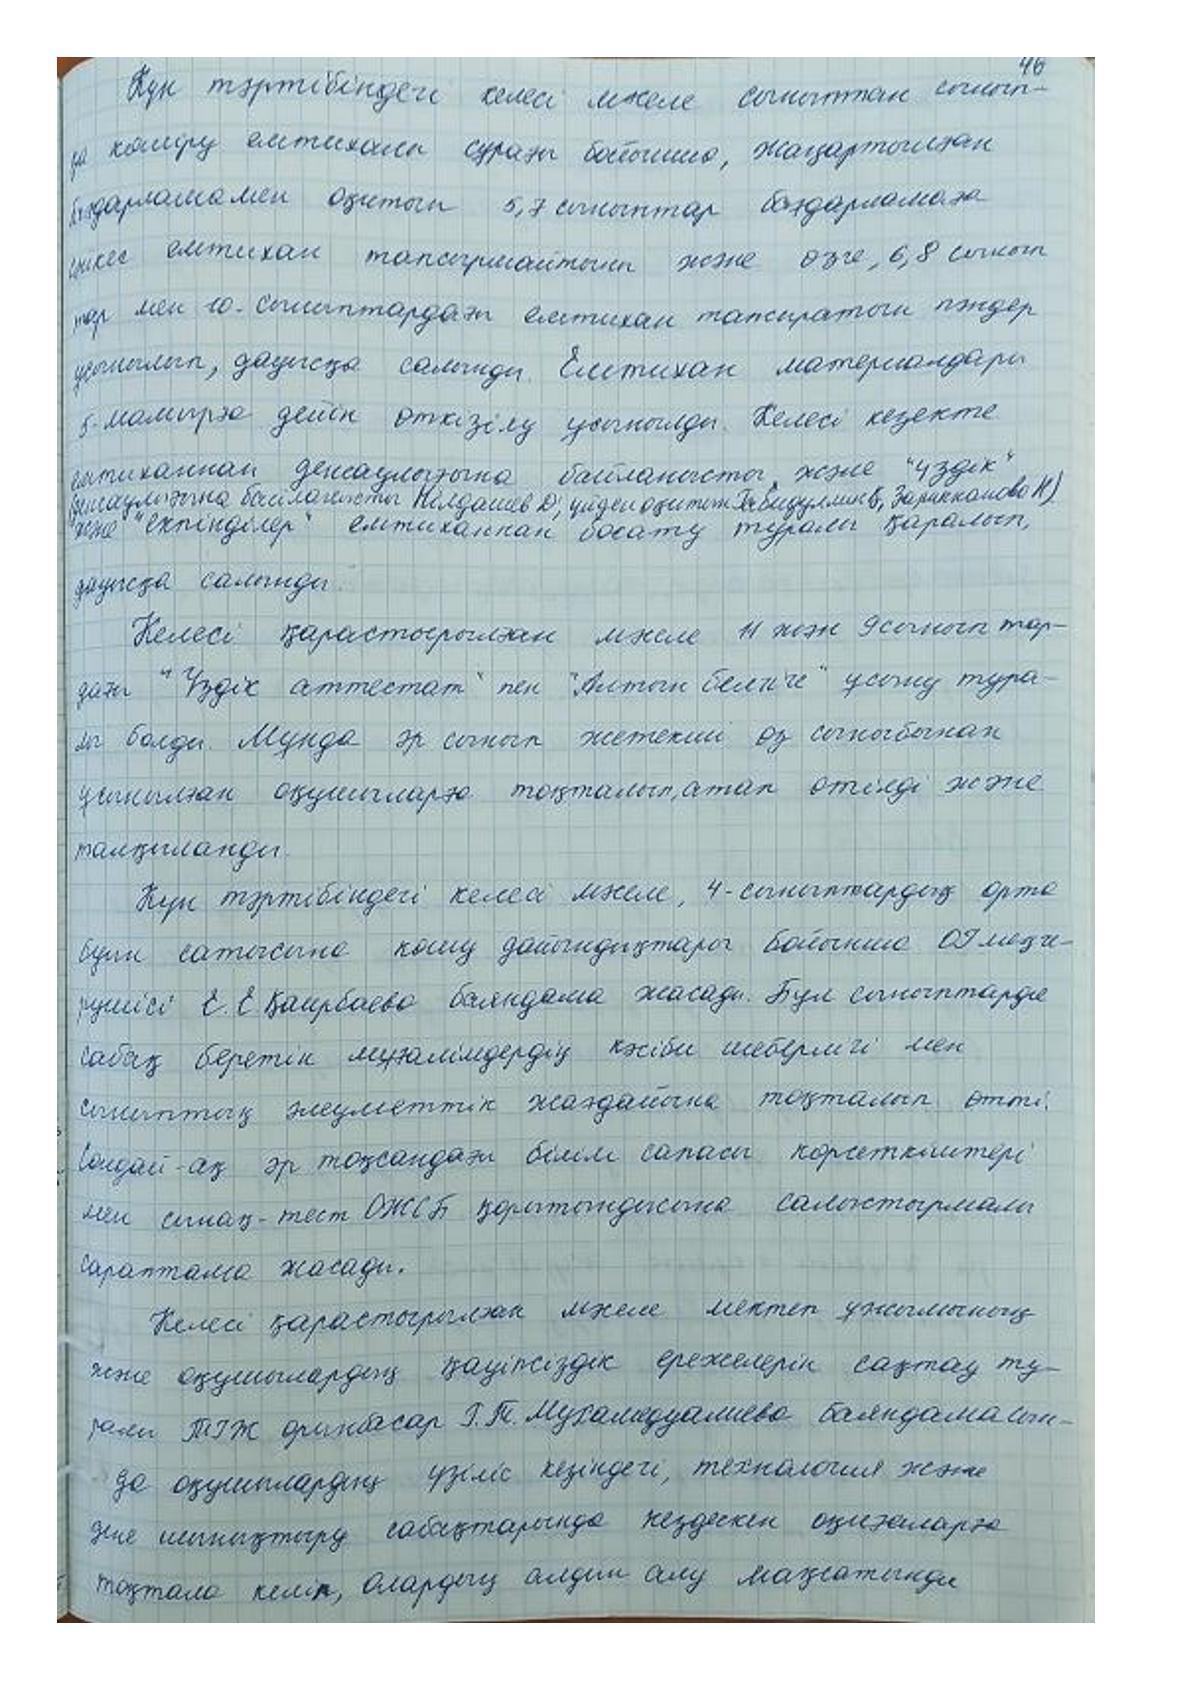 46
Күн тәртібіндегі келесі мәселе сыныптан сынып-
қа көшіру емтиханы сұрағы бойынша, жаңартылған
бағдарламамен оқитын 5,7 сыныптар бағдарламаға
сәйкес емтихан тапсырмайтыны және өзге, 6,8 сынып
тар мен 10-сыныптардағы емтихан тапсыратын пәндер
ұсынылып, дауысқа салынды. Емтихан материалдары
5-мамырға дейін өткізілу ұсынылды. Келесі кезекте
емтиханнан денсаулығына байланысты және "үздік"
(денсаулығына байланысты Нілдашев D, үйден оқитын Габидуллин Қ, Зариккан М)
және "екпінділер" емтиханнан босату туралы қаралып,
дауысқа салынды.
Келесі қарастырылған мәселе 11 және 9 сыныптар-
дағы "Үздік аттестат" пен "Алтын белгіге" ұсыну тура-
лы болды. Мұнда әр сынып жетекші өз сыныбынан
ұсынылған оқушыларға тоқталып, атап өтілді және
талқыланды.
Күн тәртібіндегі келесі мәселе, 4-сыныптардың орта
буын сатысына көшу дайындықтары бойынша ОІ меңге-
рушісі Е.Е Қаирбаева баяндама жасады. Бұл сыныптарда
сабақ беретін мұғалімдердің кәсіби шеберлігі мен
сыныптың әлеуметтік жағдайына тоқталып өтті.
Сондай-ақ әр тоқсандағы білім сапасы көрсеткіштері
мен сынақ-тест ОЖСБ қорытындысына салыстырмалы
сараптама жасады.
Келесі қарастырылған мәселе мектеп ұжымының
және оқушылардың қауіпсіздік ережелерін сақтау ту-
ралы ТІЖ орынбасар Г.Т. Мухамедуалиева баяндамасын-
да оқушылардың үзіліс кезіндегі, технология және
дене шынықтыру сабақтарында кездескен оқиғаларға
тоқтала келіп, олардың алдын алу мақсатында